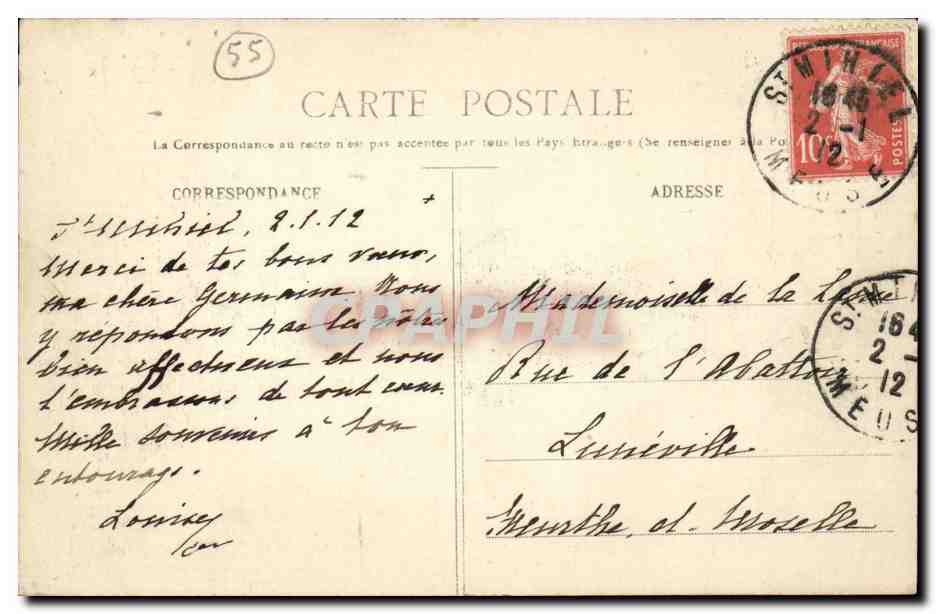 55
CARTE POSTALE
La Correspondance au recto n'est pas acceptée par tous les Pays Etrangers (Se renseigner à la Po
CORRESPONDANCE
St Mihiel, 2.1.12
Merci de tes bons voeux,
ma chère Germaine. Nous
y répondons par les nôtres
bien affectueux et nous
t'embrassons de tout coeur.
Mille souvenirs à ton
entourage.
Louise
ADRESSE
Mademoiselle de la
Rue de l'Abattoir
Lunéville
Meurthe et Moselle
FRANÇAISE
10c
POSTES
ST MIHIEL
16 45
2 -1
12
MEUSE
ST MI
16 4
2 -
12
MEUS
CPAPHIL